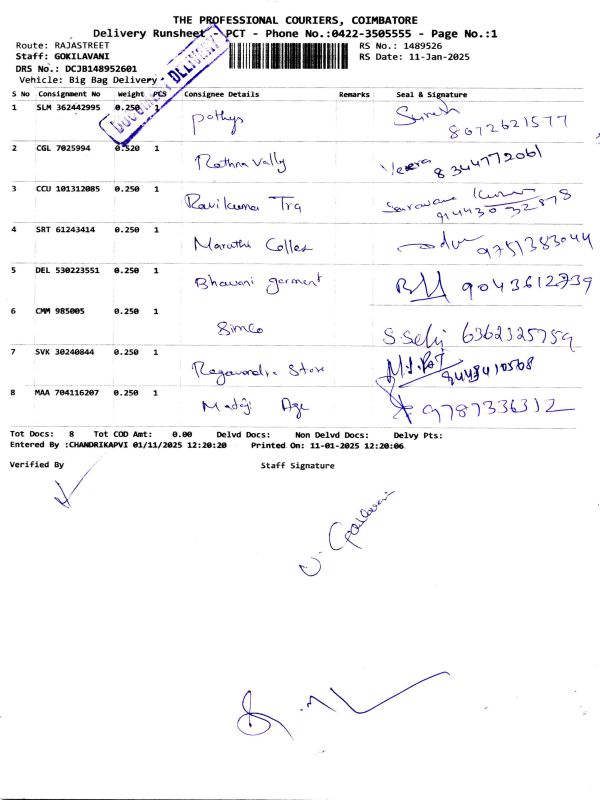 THE PROFESSIONAL COURIERS, COIMBATORE
Delivery Runsheet - PCT - Phone No.:0422-3505555 - Page No.:1
Route: RAJASTREET RS No.: 1489526
Staff: GOKILAVANI RS Date: 11-Jan-2025
DRS No.: DCJB148952601
Vehicle: Big Bag Delivery
DOCUMENT DELIVERY
S No Consignment No Weight PCS Consignee Details Remarks Seal & Signature
1 SLM 362442995 0.250 1 pothys Suresh
8672621577
2 CGL 7025994 0.520 1 Rathna Vally Veera 8344772061
3 CCU 101312085 0.250 1 Ravikumar Trg Saravana Kumar
9144303 32878
4 SRT 61243414 0.250 1 Maruthi Collec 9751383044
5 DEL 530223551 0.250 1 Bhavani garment 9043612739
6 CMM 985005 0.250 1 Simco S.Selvi 6362325759
7 SVK 30240844 0.250 1 Ragavendra Store
8443410568
8 MAA 704116207 0.250 1 Madaji Age 9787336312
Tot Docs: 8 Tot COD Amt: 0.00 Delvd Docs: Non Delvd Docs: Delvy Pts:
Entered By :CHANDRIKAPVI 01/11/2025 12:20:20 Printed On: 11-01-2025 12:20:06
Verified By Staff Signature